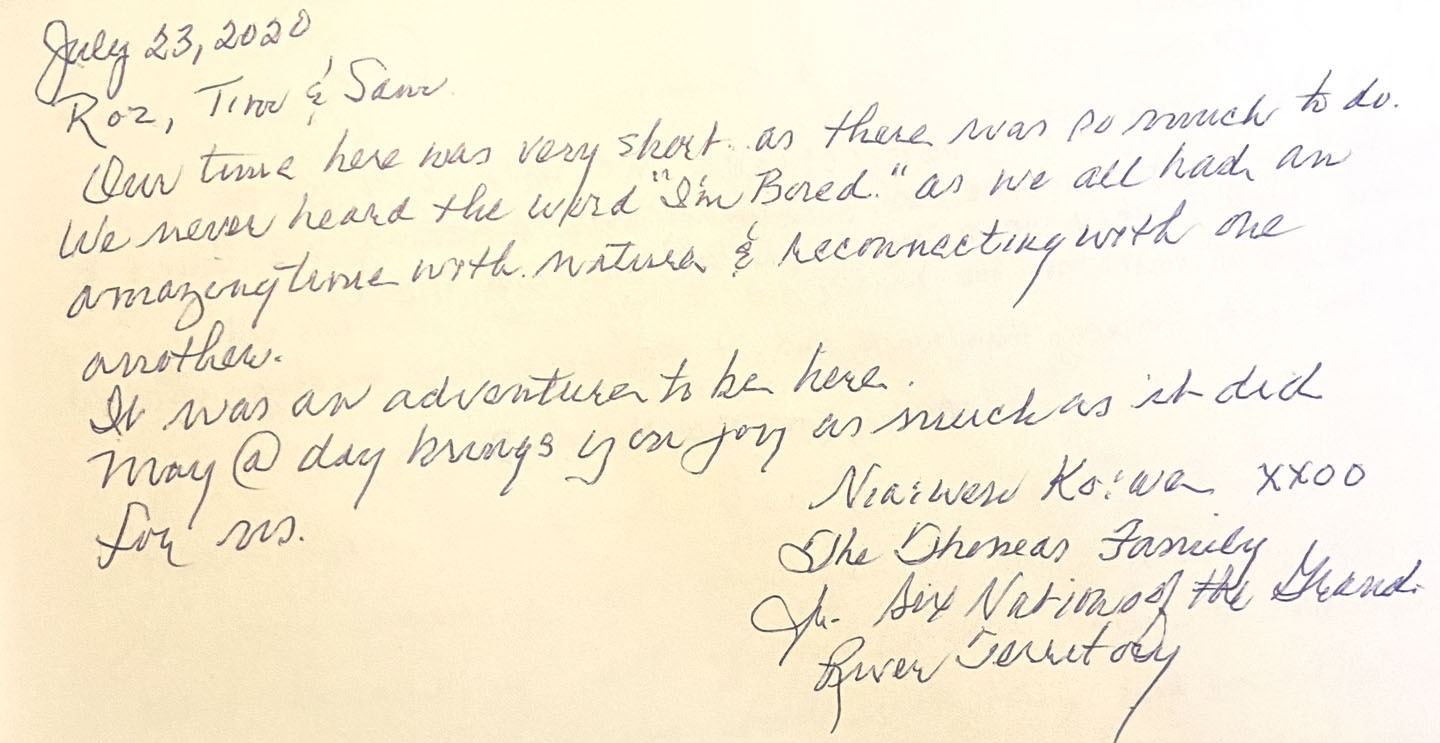 July 23, 2020
Roz, Tim & Sam
Our time here was very short as there was so much to do.
We never heard the word "I'm Bored." as we all had an
amazing time with nature & reconnecting with one
another.
It was an adventure to be here.
May @ day brings you joy as much as it did
for us.
Nia:wen Ko:wa xxoo
The Thomas Family
Six Nations of the Grand
River Territory